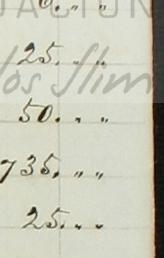 DACIÓN
0. „ „
25. „ „
los Slim
50. „ „
735. „ „
25. „ „